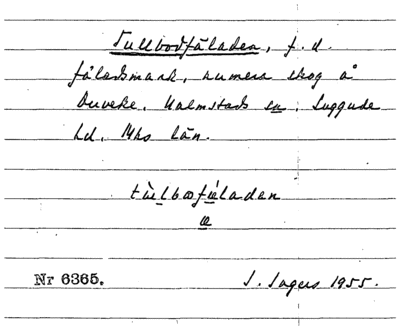 Tullbodfäladen, f.d.
fäladsmark, numera skog å
Duveke, Halmstads sn, Luggude
hd, Mhs län.
tùlbofæ̀laden
æ
Nr 6365. I. Ingers 1955.